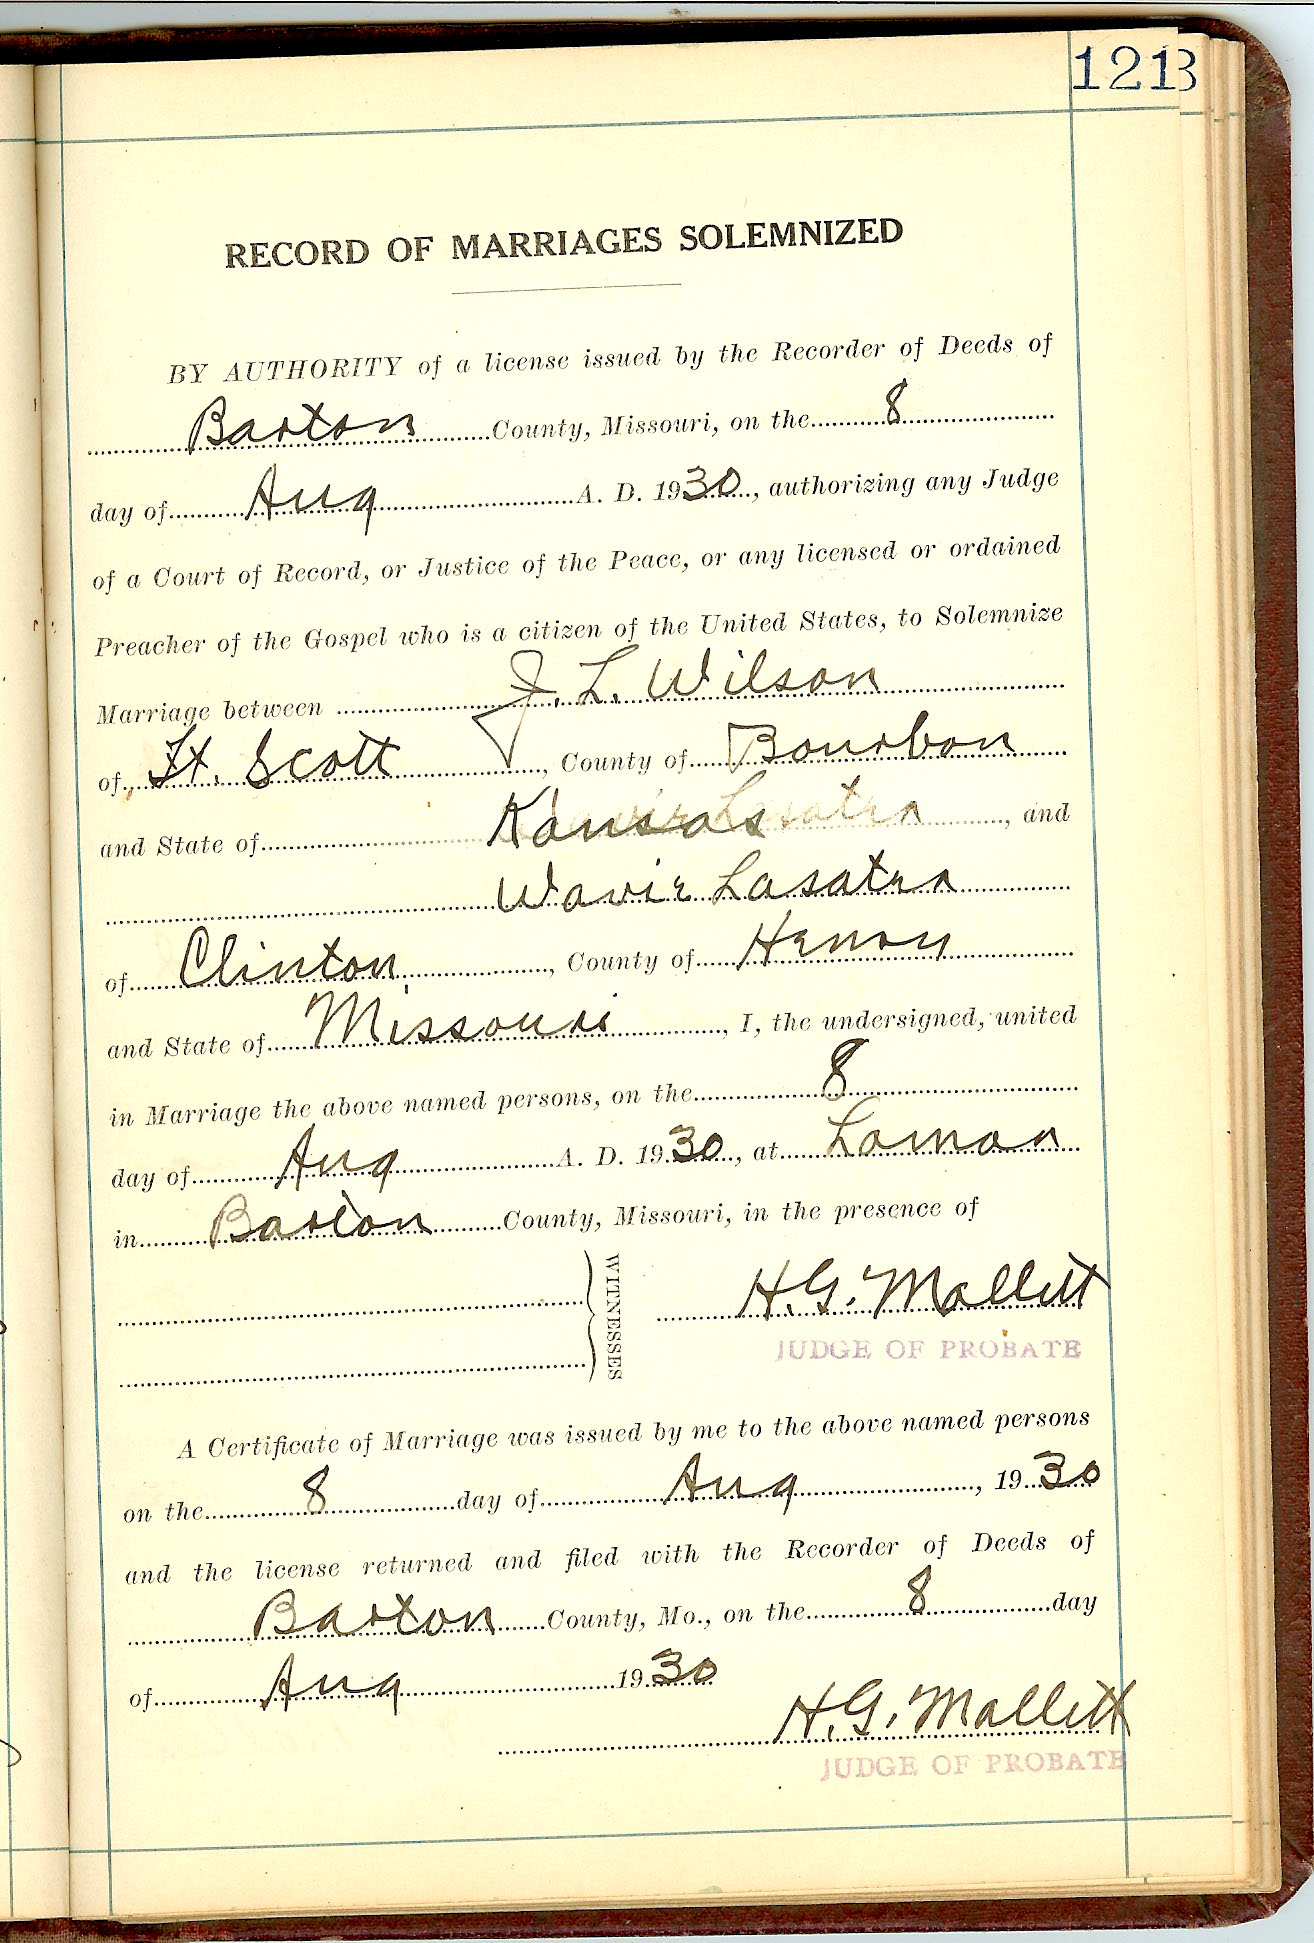 121
3
RECORD OF MARRIAGES SOLEMNIZED
BY AUTHORITY of a license issued by the Recorder of Deeds of
Barton County, Missouri, on the 8
day of Aug A. D. 1930, authorizing any Judge
of a Court of Record, or Justice of the Peace, or any licensed or ordained
Preacher of the Gospel who is a citizen of the United States, to Solemnize
Marriage between J. L. Wilson
of Ft. Scott, County of Bourbon
and State of Kansas, and
Wavie Lasatra
of Clinton, County of Henry
and State of Missouri, I, the undersigned, united
in Marriage the above named persons, on the 8
day of Aug A. D. 1930, at Lamar
in Barton County, Missouri, in the presence of
WITNESSES
H. G. Mallett
JUDGE OF PROBATE
A Certificate of Marriage was issued by me to the above named persons
on the 8 day of Aug, 1930
and the license returned and filed with the Recorder of Deeds of
Barton County, Mo., on the 8 day
of Aug 1930
H. G. Mallett
JUDGE OF PROBATE